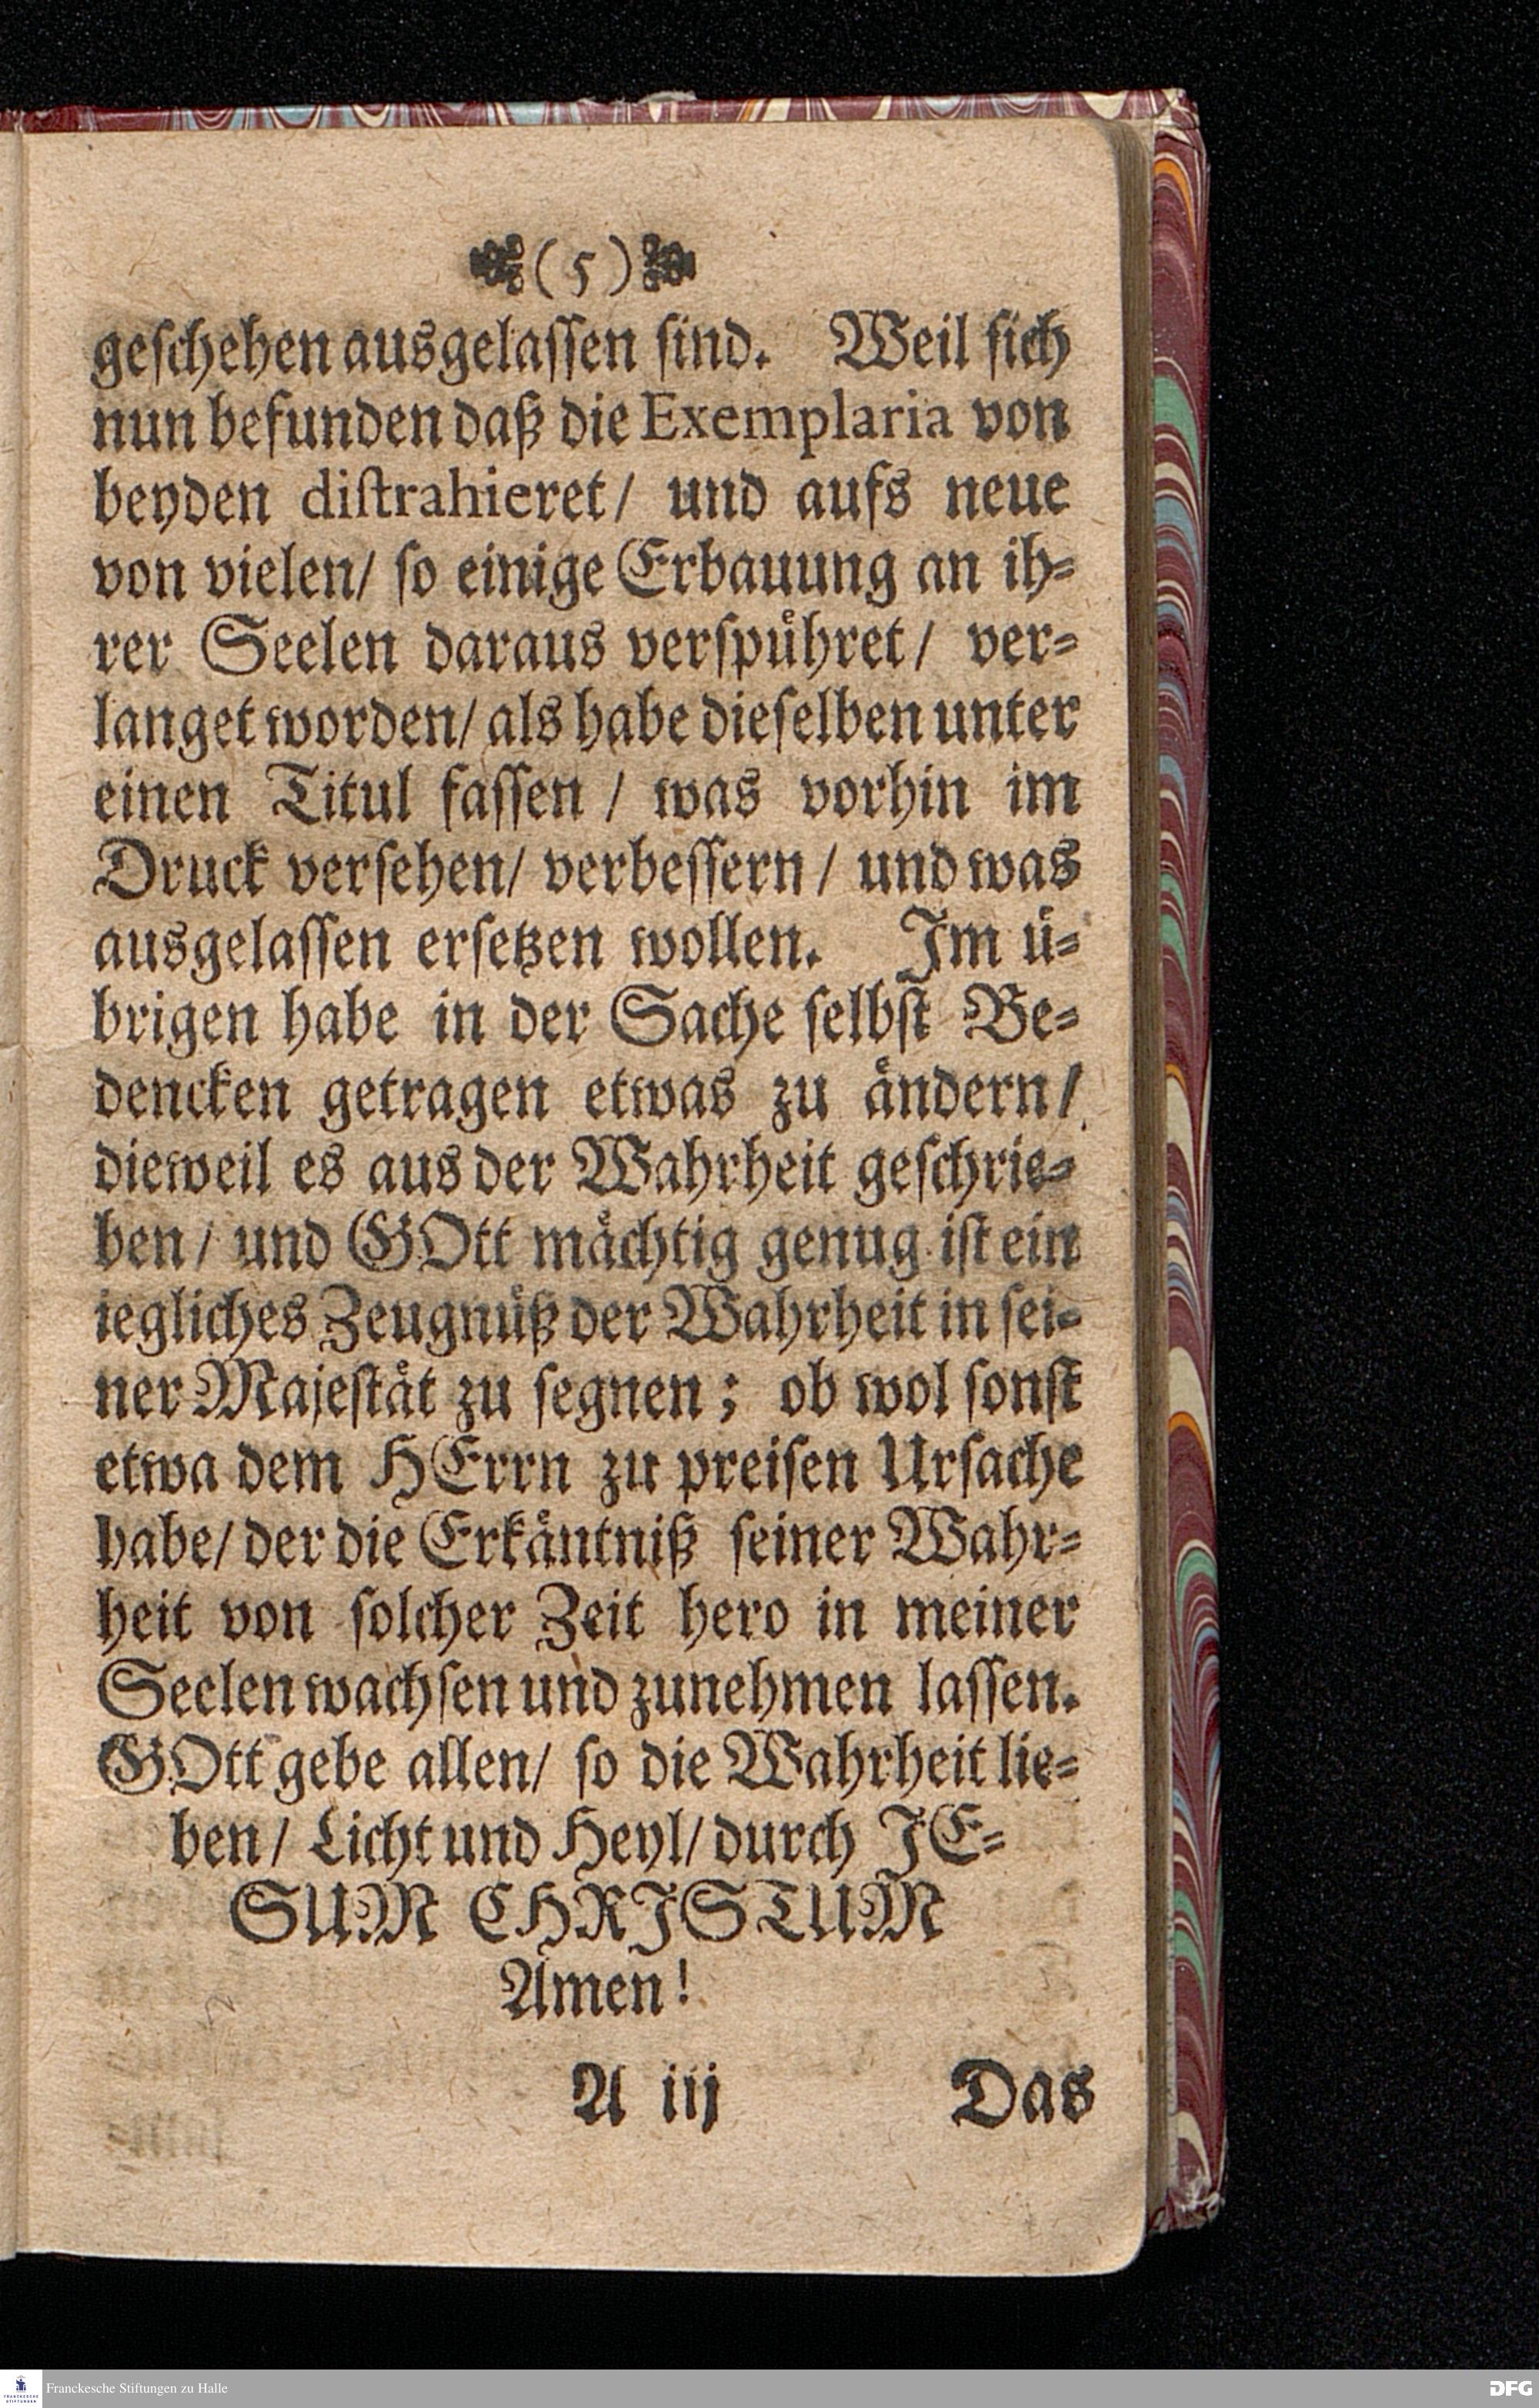 (5)
geschehen ausgelassen sind. Weil sich
nun befunden daß die Exemplaria von
beyden distrahieret/ und aufs neue
von vielen/ so einige Erbauung an ih-
rer Seelen daraus verspühret/ ver-
langet worden/ als habe dieselben unter
einen Titul fassen / was vorhin im
Druck versehen/ verbessern / und was
ausgelassen ersetzen wollen. Im ü-
brigen habe in der Sache selbst Be-
dencken getragen etwas zu ändern/
dieweil es aus der Wahrheit geschrie-
ben / und GOtt mächtig genug ist ein
iegliches Zeugnüß der Wahrheit in sei-
ner Majestät zu segnen; ob wol sonst
etwa dem HErrn zu preisen Ursache
habe/ der die Erkäntniß seiner Wahr-
heit von solcher Zeit hero in meiner
Seelen wachsen und zunehmen lassen.
GOtt gebe allen/ so die Wahrheit lie-
ben/ Licht und Heyl/ durch JE-
SUM CHRISTUM
Amen!
A iij Das
Franckesche Stiftungen zu Halle
DFG